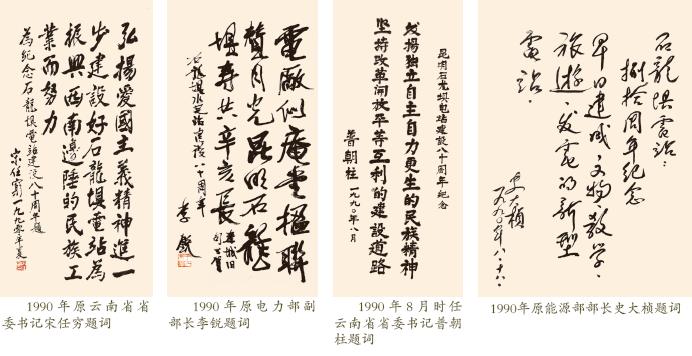 弘揚愛國主義精神進一
步建設好石龍壩電站為
振興西南邊陲的民族工
業而努力
為紀念石龍壩電站建設八十周年題
宋任窮一九九零年夏
1990年原云南省省
委书记宋任穷题词
電廠似庵堂楹聯
贊月光昆明石龍
壩壽共辛亥長
石龍壩水電站建設八十周年
李銳
1990年原电力部副
部长李锐题词
昆明石龙坝电站建设八十周年纪念
发揚独立自主自力更生的民族精神
坚持改革開放平等互利的建設道路
普朝柱 一九九〇年八月
1990年8月时任
云南省省委书记普朝
柱题词
石龍壩電站：
捌拾周年纪念
早日建成、文物、教学、
旅遊、发電的新型
電站．
史大楨
一九九〇年八.十六.
1990年原能源部部长史大桢题词